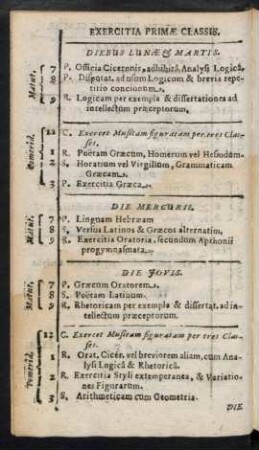 EXERCITIA PRIMÆ CLASSIS.
DIEBUS LUNÆ & MARTIS.
Matut.
7 P. Officia Ciceronis, adhibitâ Analysi Logicâ.
8 P. Disputat. ad usum Logicum & brevis repe-
titio concionum.
9 R. Logicam per exempla & dissertationes ad
intellectum præceptorum.
Pomerid.
12 C. Exercet Musicam figuratam per tres Clas-
ses.
1 R. Poëtam Græcum, Homerum vel Hesiodum.
2 S. Horatium vel Virgilium, Grammaticam
Græcam.
3 P. Exercitia Græca.
DIE MERCURII.
Matut.
7 P. Linguam Hebræam
8 S. Versus Latinos & Græcos alternatim.
9 R. Exercitia Oratoria, secundum Apthonii
progymnasmata.
DIE JOVIS.
Matut.
7 P. Græcum Oratorem.
8 S. Poëtam Latinum.
9 R. Rhetoricam per exempla & dissertat. ad in-
tellectum præceptorum.
Pomerid.
12 C. Exercet Musicam figuratam per tres Clas-
ses.
1 R. Orat. Cicer. vel breviorem aliam, cum Ana-
lysi Logicâ & Rhetoricâ.
2 R. Exercitia Styli extemporanea, & Variatio-
nes Figurarum.
3 S. Arithmeticam cum Geometria.
DIE